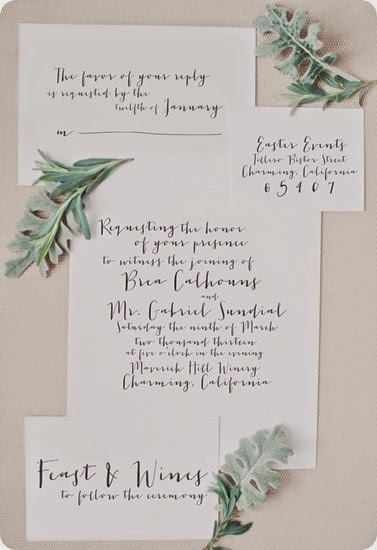 The favor of your reply
is requested by the
twelfth of January
m
Easter Events
Tillero Bistor Street
Charming, California
65407
Requesting the honor
of your presence
to witness the joining of
Brea Calhouns
and
Mr. Gabriel Sundial
Saturday the ninth of March
two thousand thirteen
at five o clock in the evening
Maverick Hill Winery
Charming, California
Feast & Wines
to follow the ceremony